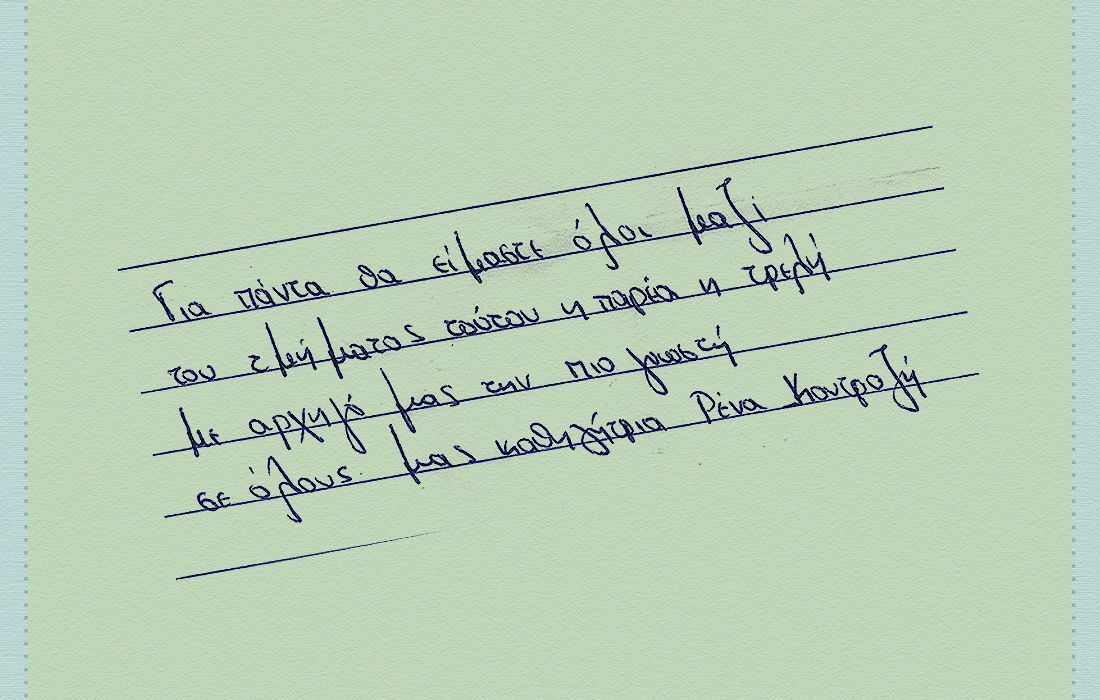 Για πάντα θα είμαστε όλοι μαζί
του τμήματος τούτου η παρέα η τρελή
με αρχηγό μας την πιο γνωστή
σε όλους μας καθηγήτρια Ρένα Κοντροζή